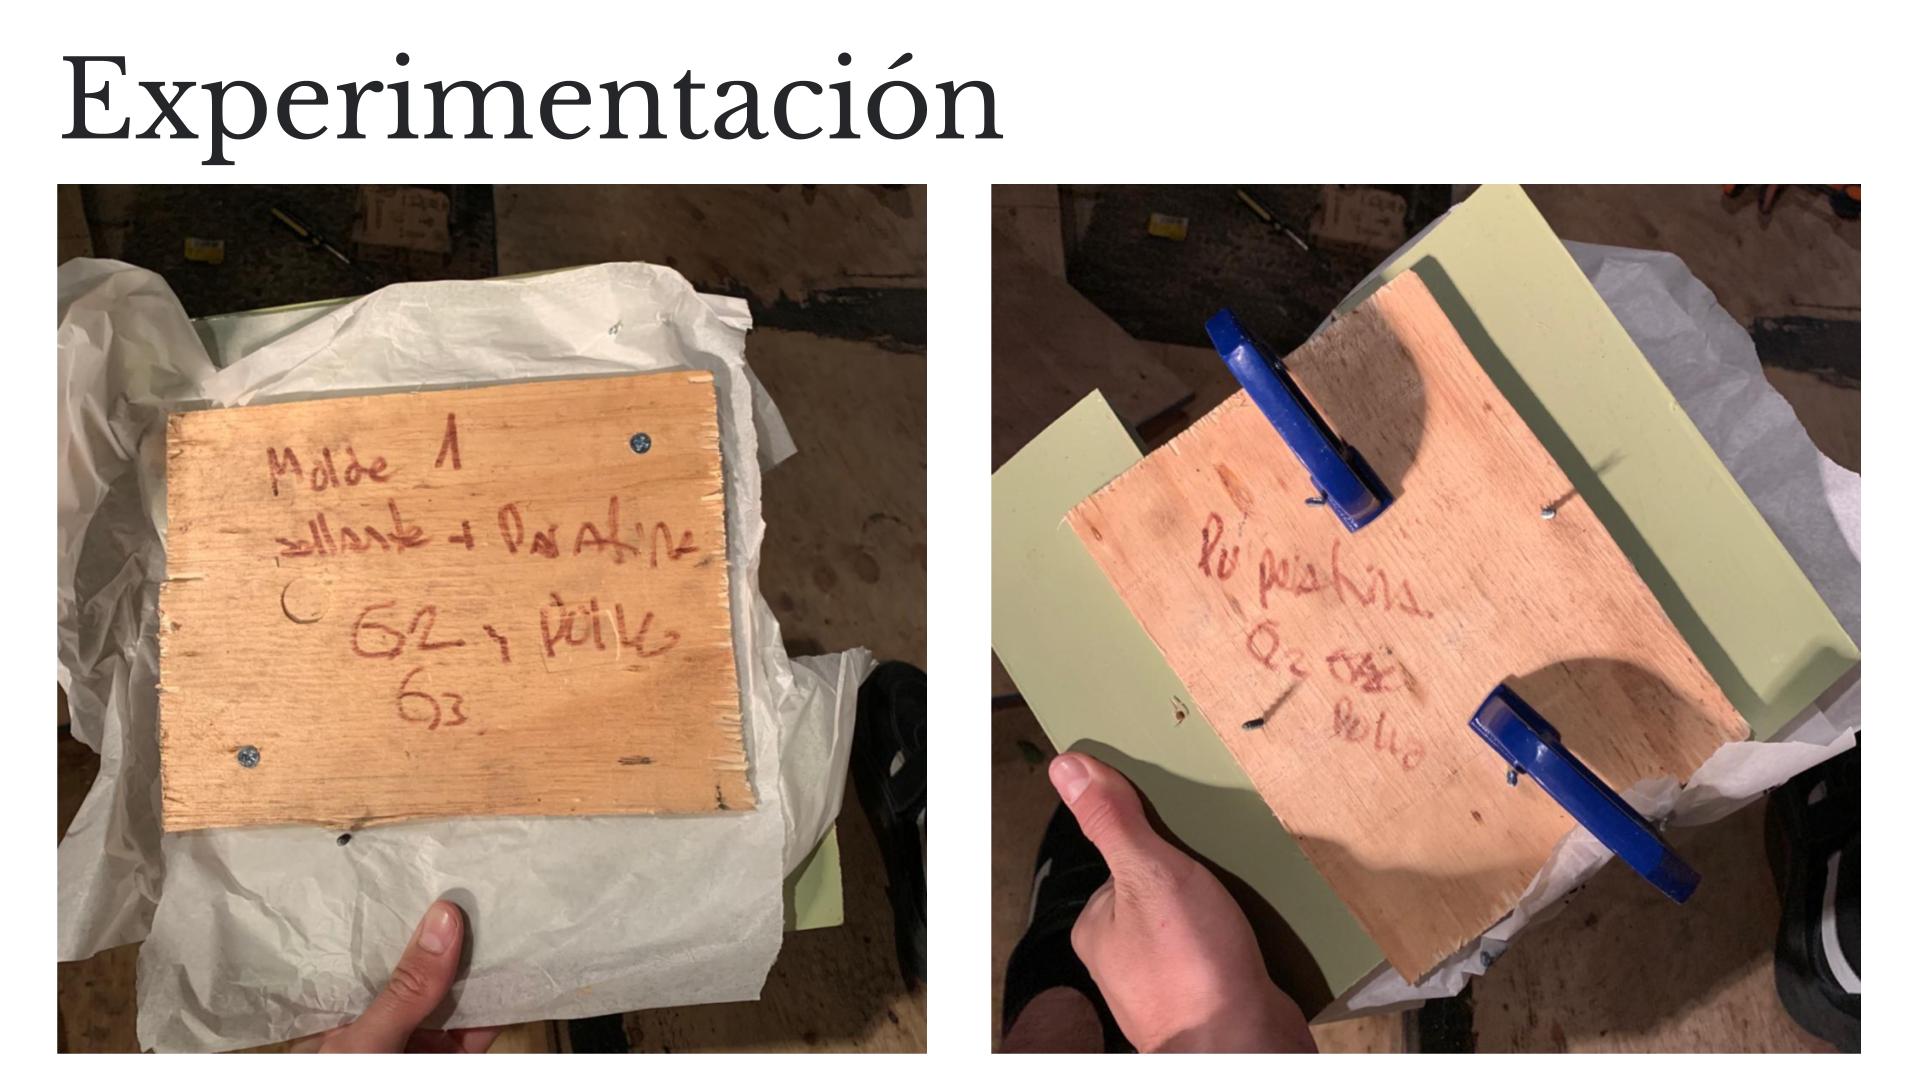 Experimentación
Molde 1
sellante + Parafina
G2 y Pollo
G3.
PU parafina
G2
Pollo